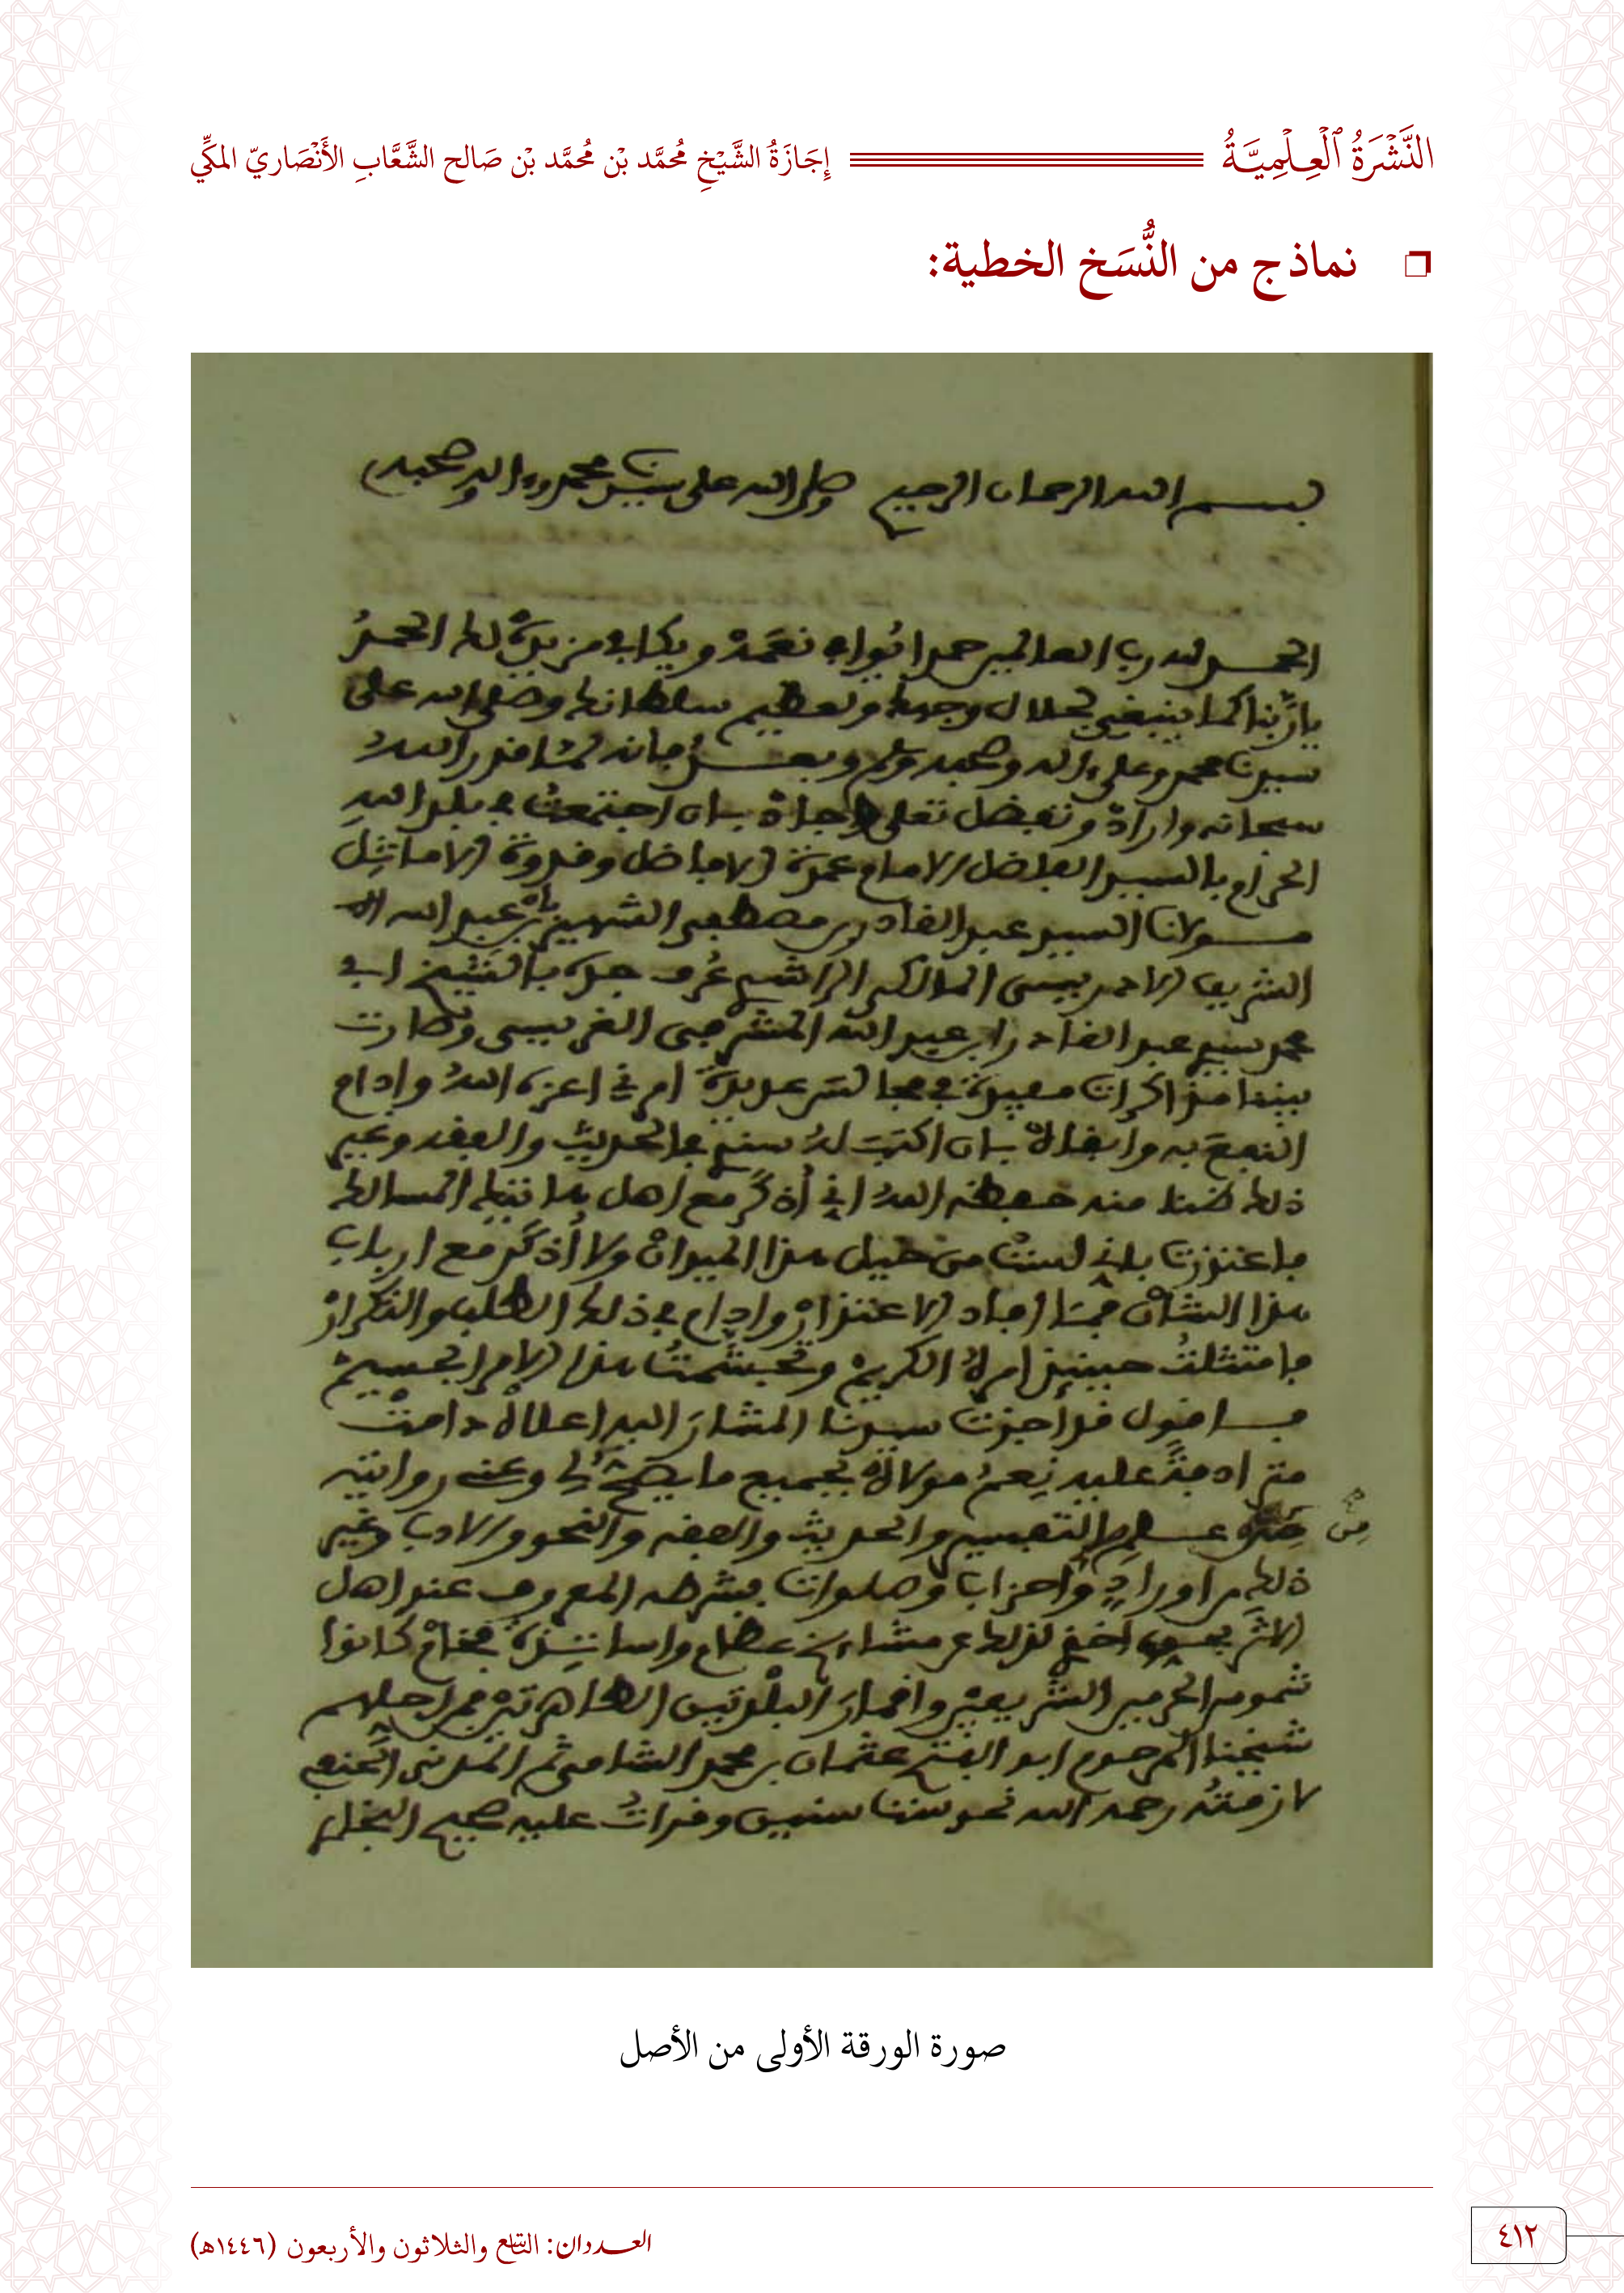 النَّشْرَةُ ٱلْعِلْمِيَّةُ
إِجَازَةُ الشَّيْخِ مُحمَّد بْن مُحمَّد بْن صَالح الشَّعَّابِ الأَنْصَاريّ المكِّي
نماذج من النُّسَخ الخطية:
بسم الله الرحمان الرحيم وصلى الله على سيدنا محمد وءاله وصحبه
الحمد لله رب العالمين حمدا يُوافي نعَمَهُ ويكافي مزيدَهُ لك الحمدُ
يا ربَّنا كما ينبغي لجلال وجهك وتعظيم سلطانك وصلى الله على
سيدنا محمد وعلى ءاله وصحبه وسلم وبعدُ فانه لمَّا قدر اللهُ
سبحانه وارادَ وتفضل تعلى وجادَ بان اجتمعتُ في بلد اللهِ
الحرام بالسيد الفاضل الامام عمدة الافاضل وقدوة الاماثِل
مولانا السيد عبد القادر بن مصطفى الشهير بابن عبد الله
الشريف الاحمد يسى المالكي الراشدي عُرف جده بالشيخ ابي
محمد سيدي عبد القادر ابن عبد الله المشرفي الغريسي وصارت
بيننا مذاكرات مفيدة في مجالس عديدة امرني اعزه اللهُ وادام
النفعَ به وابقاهُ بان اكتبَ لهُ سندي في الحديث والفقه وغير
ذلك ظنا منه حفظه اللهُ اني أُذكَر مع اهل هاتيك المسالك
فاعتذرت باني لستُ من خيل هذا الميدانْ ولا أُذكَر مع ارباب
هذا الشانْ فما افاد الاعتذارْ وادام في ذلك الطلب والتكرارْ
فامتثلتُ حينئذ امرهُ الكريمْ وتجشَّمتُ هذا الامر الجسيمْ
فاقول قد اجزت سيدنا المشارَ اليه اعلاهْ دامتْ
مترادفةً عليه نِعمُ مولاهْ بجميع ما يصحُّ لي وعني روايته
من علم التفسير والحديث والفقه والنحو والادب وغير
ذلك من اورادٍ واحزاب وصلوات بشرطه المعروف عند اهل
الاثر بحسب اخذي لذلك عن مشايخ عظام واساتِذة فخامْ كانوا
شموس الحرمين الشريفينْ واقمارَ البلدتين الطاهرتينْ فمن اجلهم
شيخنا المرحوم ابو الفتح عثمان بن محمد الشامي ثم المدني الحنفي
لازمتُه رحمه الله نحو ستّ سنين وقراتُ عليه صحيح البخاري
صورة الورقة الأولى من الأصل
العددان: التاسع والثلاثون والأربعون (١٤٤٦هـ)
٤١٢